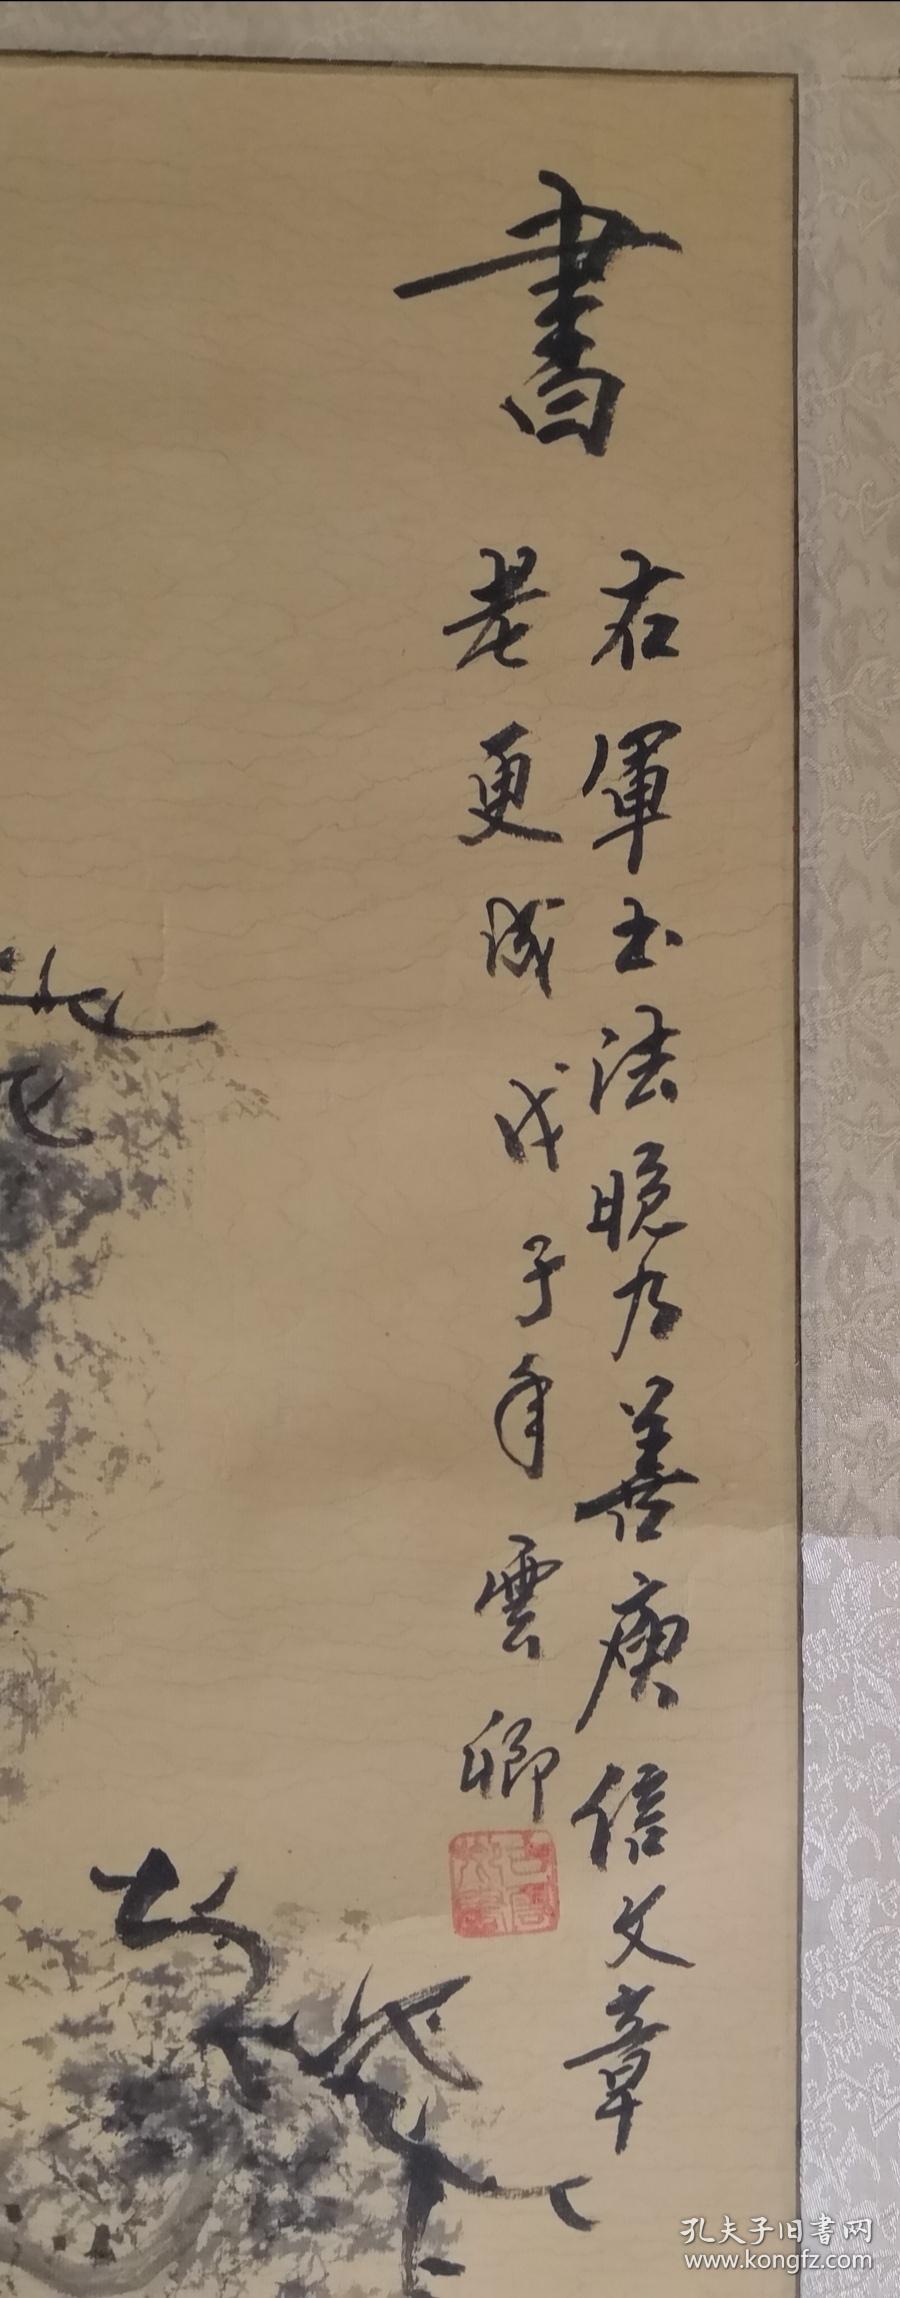 書
右軍书法晚乃善庾信文章
老更成戊子年雲卿
孔夫子旧書网
www.kongfz.com